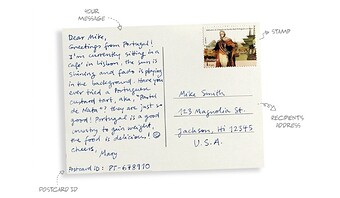 YOUR
MESSAGE
Dear Mike,
Greetings from Portugal!
I'm currently sitting in a
cafe in Lisbon, the sun is
shining and fado is playing
in the background. Have you
ever tried a Portuguese
custard tart, aka, "Pastel
de Nata"? they are just so
good! Portugal is a good
country to gain weight,
the food is delicious!
Cheers,
Mary
Postcard ID: PT-678910
STAMP
Mike Smith
123 Magnolia St.
Jackson, Hi 12345
U.S.A.
RECIPIENTS
ADDRESS
POSTCARD ID